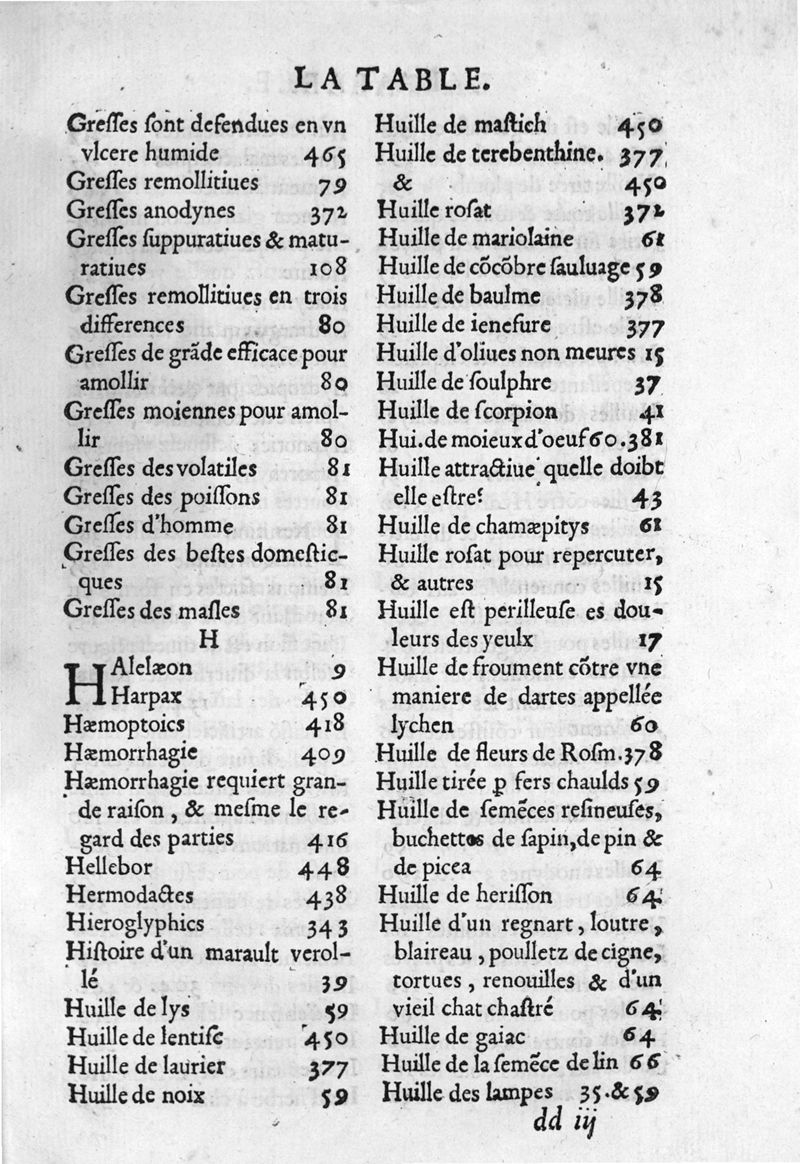 LA TABLE.
Greſſes ſont defendues en vn
vlcere humide 465
Greſſes remollitiues 79
Greſſes anodynes 372
Greſſes ſuppuratiues & matu-
ratiues 108
Greſſes remollitiues en trois
differences 80
Greſſes de grãde efficace pour
amollir 80
Greſſes moiennes pour amol-
lir 80
Greſſes des volatiles 81
Greſſes des poiſſons 81
Greſſes d'homme 81
Greſſes des beſtes domeſtic-
ques 81
Greſſes des maſles 81
H
HAlelæon 9
Harpax 450
Hæmoptoics 418
Hæmorrhagie 409
Hæmorrhagie requiert gran-
de raiſon, & meſme le re-
gard des parties 416
Hellebor 448
Hermodactes 438
Hieroglyphics 343
Hiſtoire d'un marault verol-
lé 39
Huille de lys 59
Huille de lentiſc 450
Huille de laurier 377
Huille de noix 59
Huille de maſtich 450
Huille de terebenthine. 377
& 450
Huille roſat 372
Huille de mariolaine 61
Huille de cõcõbre ſauluage 59
Huille de baulme 378
Huille de ieneſure 377
Huille d'oliues non meures 15
Huille de ſoulphre 37
Huille de ſcorpion 41
Hui. de moieux d'oeuf 60. 381
Huille attractiue quelle doibt
elle eſtre? 43
Huille de chamæpitys 61
Huille roſat pour repercuter,
& autres 15
Huille eſt perilleuſe es dou-
leurs des yeulx 17
Huille de froument cõtre vne
maniere de dartes appellée
lychen 60
Huille de fleurs de Roſm. 378
Huille tirée ꝑ fers chaulds 59
Huille de ſemẽces reſineuſes,
buchettos de ſapin, de pin &
de picea 64
Huille de heriſſon 64
Huille d'un regnart, loutre,
blaireau, poulletz de cigne,
tortues, renouilles & d'un
vieil chat chaſtré 64
Huille de gaiac 64
Huille de la ſemẽce de lin 66
Huille des lampes 35. & 59
dd iij